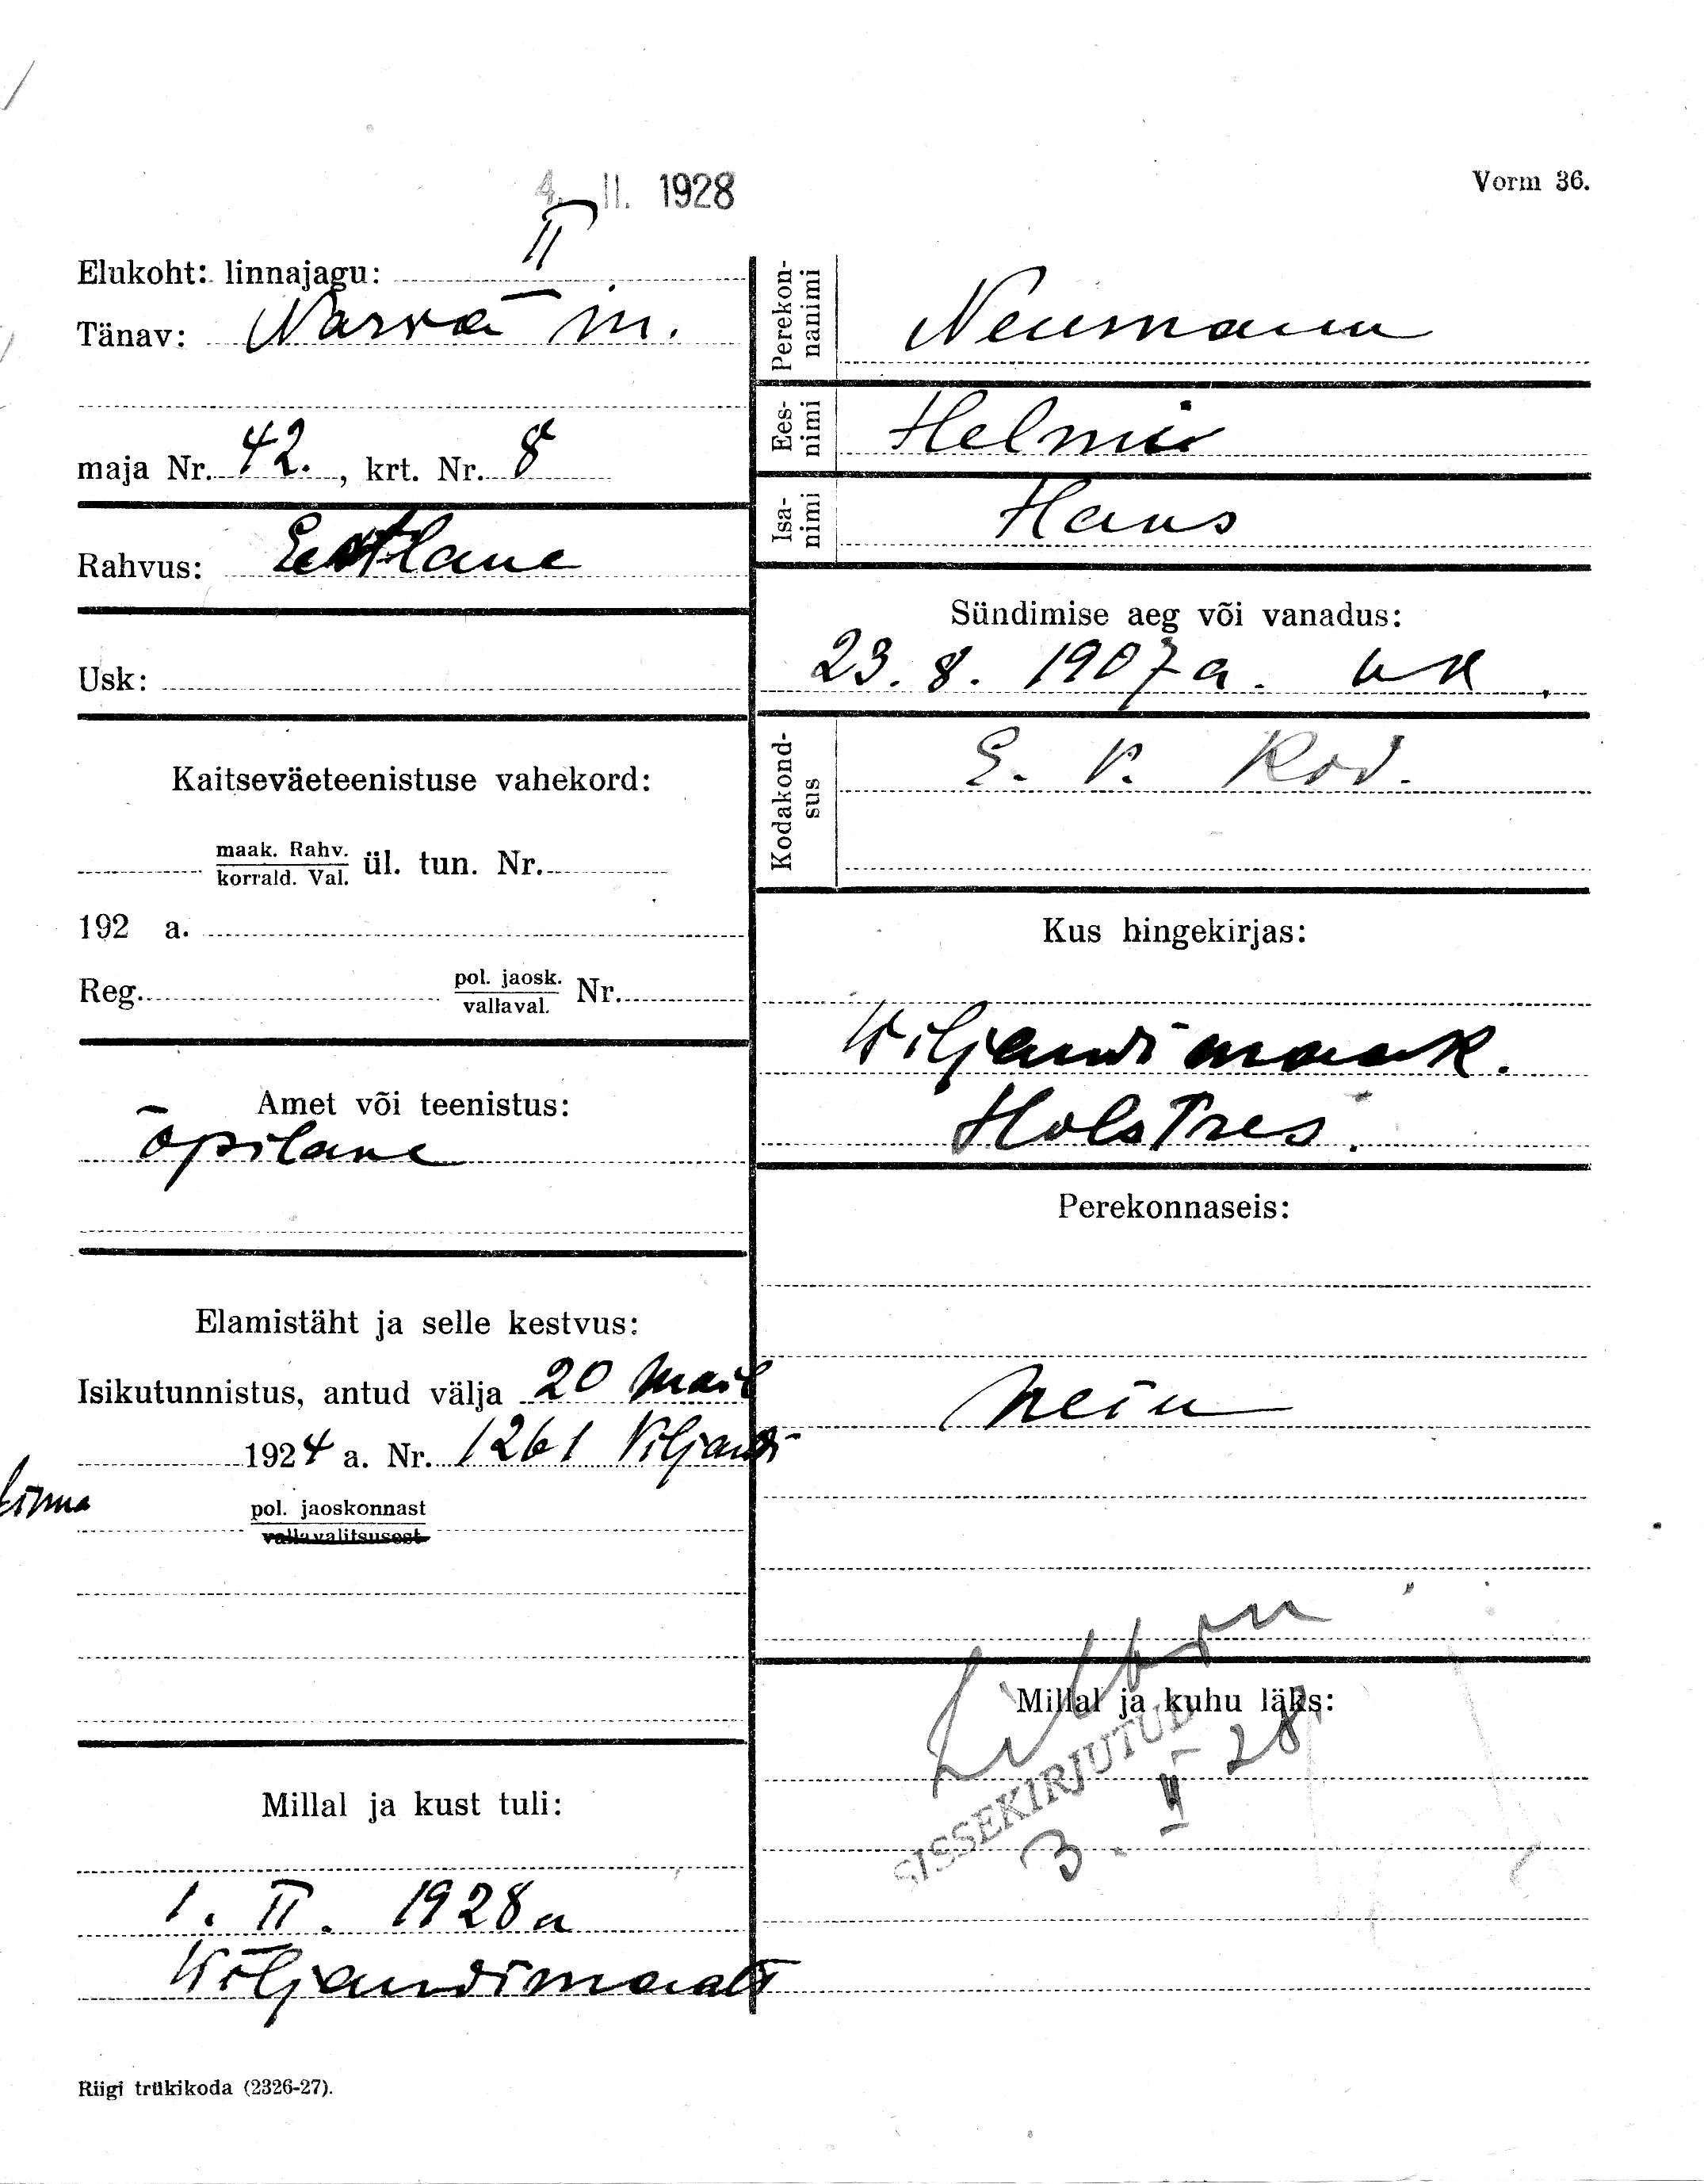 4. II. 1928
Vorm 36.
Elukoht: linnajagu: II
Tänav: Narva m.
maja Nr. 42., krt. Nr. 8
Rahvus: Eestlane
Usk:
Kaitseväeteenistuse vahekord:
maak. Rahv.
korrald. Val. ül. tun. Nr.
192 a.
Reg. pol. jaosk.
vallaval. Nr.
Amet või teenistus:
õpilane
Elamistäht ja selle kestvus:
Isikutunnistus, antud välja 20 mail
1924 a. Nr. 1261 Viljandi
linna pol. jaoskonnast
vallavalitsusest
Millal ja kust tuli:
1. II. 1928 a
Wiljandimaalt
Riigi trükikoda (2326-27).
Perekon-
nanimi
Neumann
Ees-
nimi
Helmi
Isa-
nimi
Hans
Sündimise aeg või vanadus:
23. 8. 1907 a. uk.
Kodakond-
sus
E. V. Kod.
Kus hingekirjas:
Wiljandi maak.
Holstres.
Perekonnaseis:
neiu
Millal ja kuhu läks:
SISSEKIRJUTUD
3. II 28